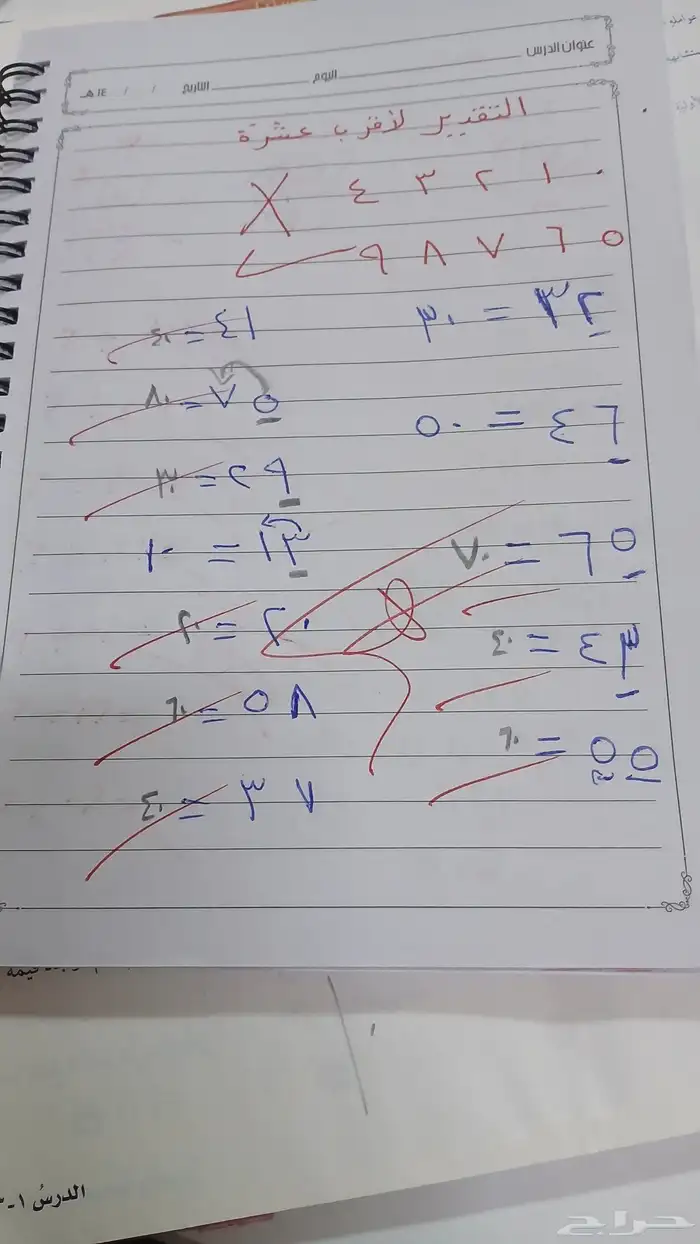 عنوان الدرس
اليوم التاريخ / / ١٤هـ
التقدير لأقرب عشرة
٠ ١ ٢ ٣ ٤ X
٥ ٦ ٧ ٨ ٩ ✓
٣٢ = ٣٠
٤١ = ٤٠
٤٦ = ٥٠
٧٥ = ٨٠
٢٩ = ٣٠
٦٥ = ٧٠
١٣ = ١٠
٤٣ = ٤٠
٢٠ = ٢٠
٥٥ = ٦٠
٥٨ = ٦٠
٣٧ = ٤٠
الدرسُ ١-
حراج